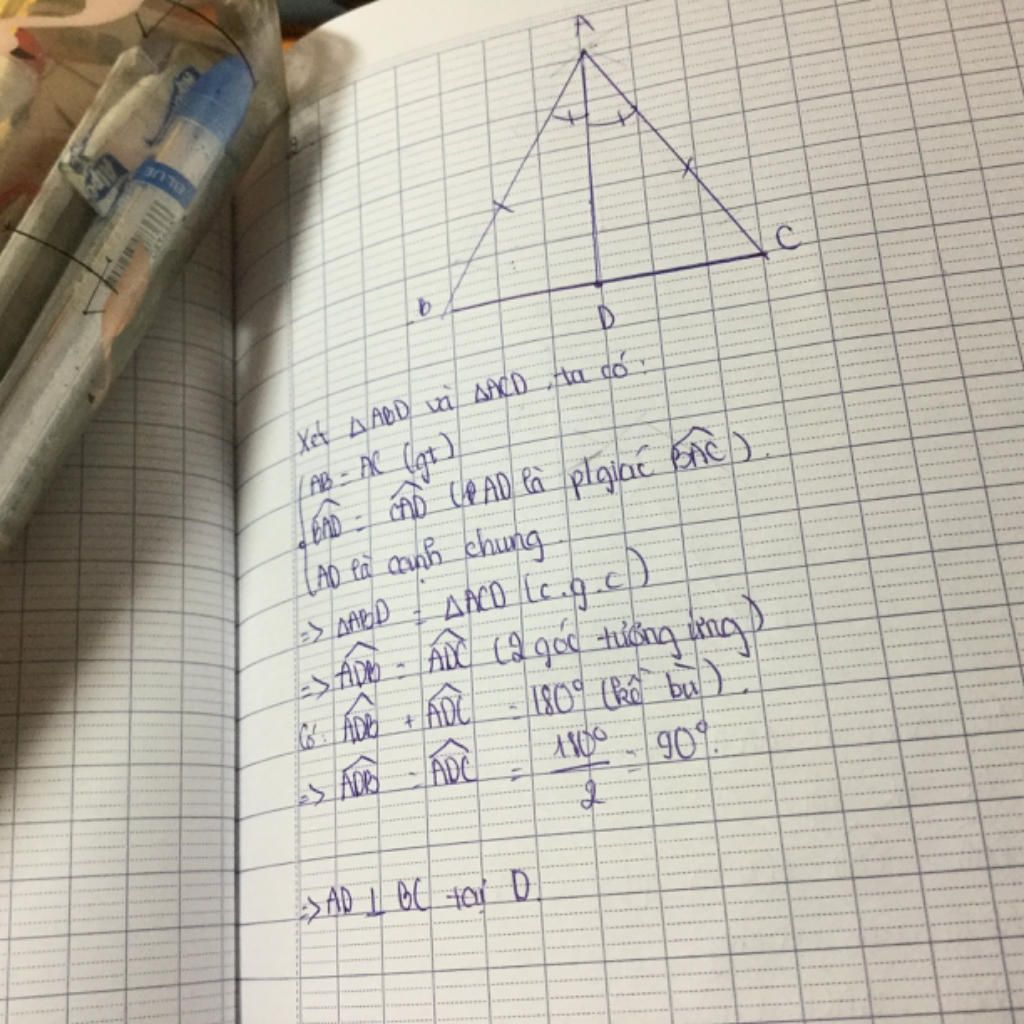 BLUE
A
B
C
D
Xét ΔABD và ΔACD, ta có:
AB = AC (gt)
BAD = CAD (AD là p/giác BAC).
AD là cạnh chung.
=> ΔABD = ΔACD (c.g.c)
=> ADB = ADC (2 góc tương ứng)
Có: ADB + ADC = 180° (kề bù).
=> ADB = ADC = 180°/2 = 90°.
=> AD ⊥ BC tại D.